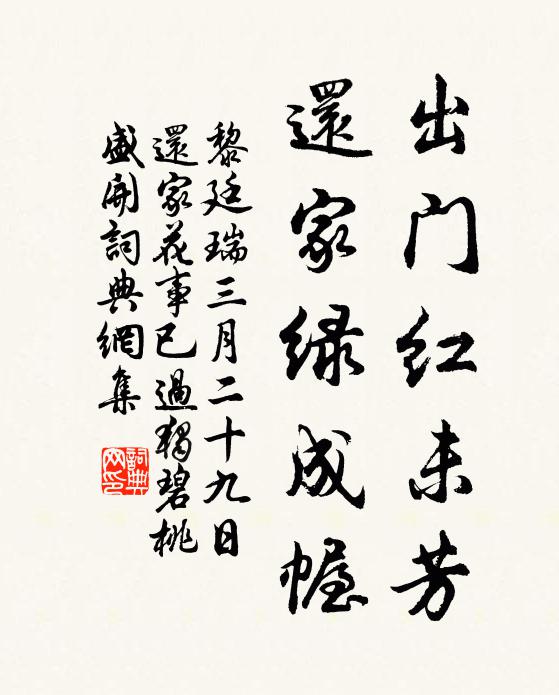 出门红未芳
還家緑成幄
黎廷瑞三月二十九日
還家花事已過獨碧桃
盛開詞典網集
詞典网印